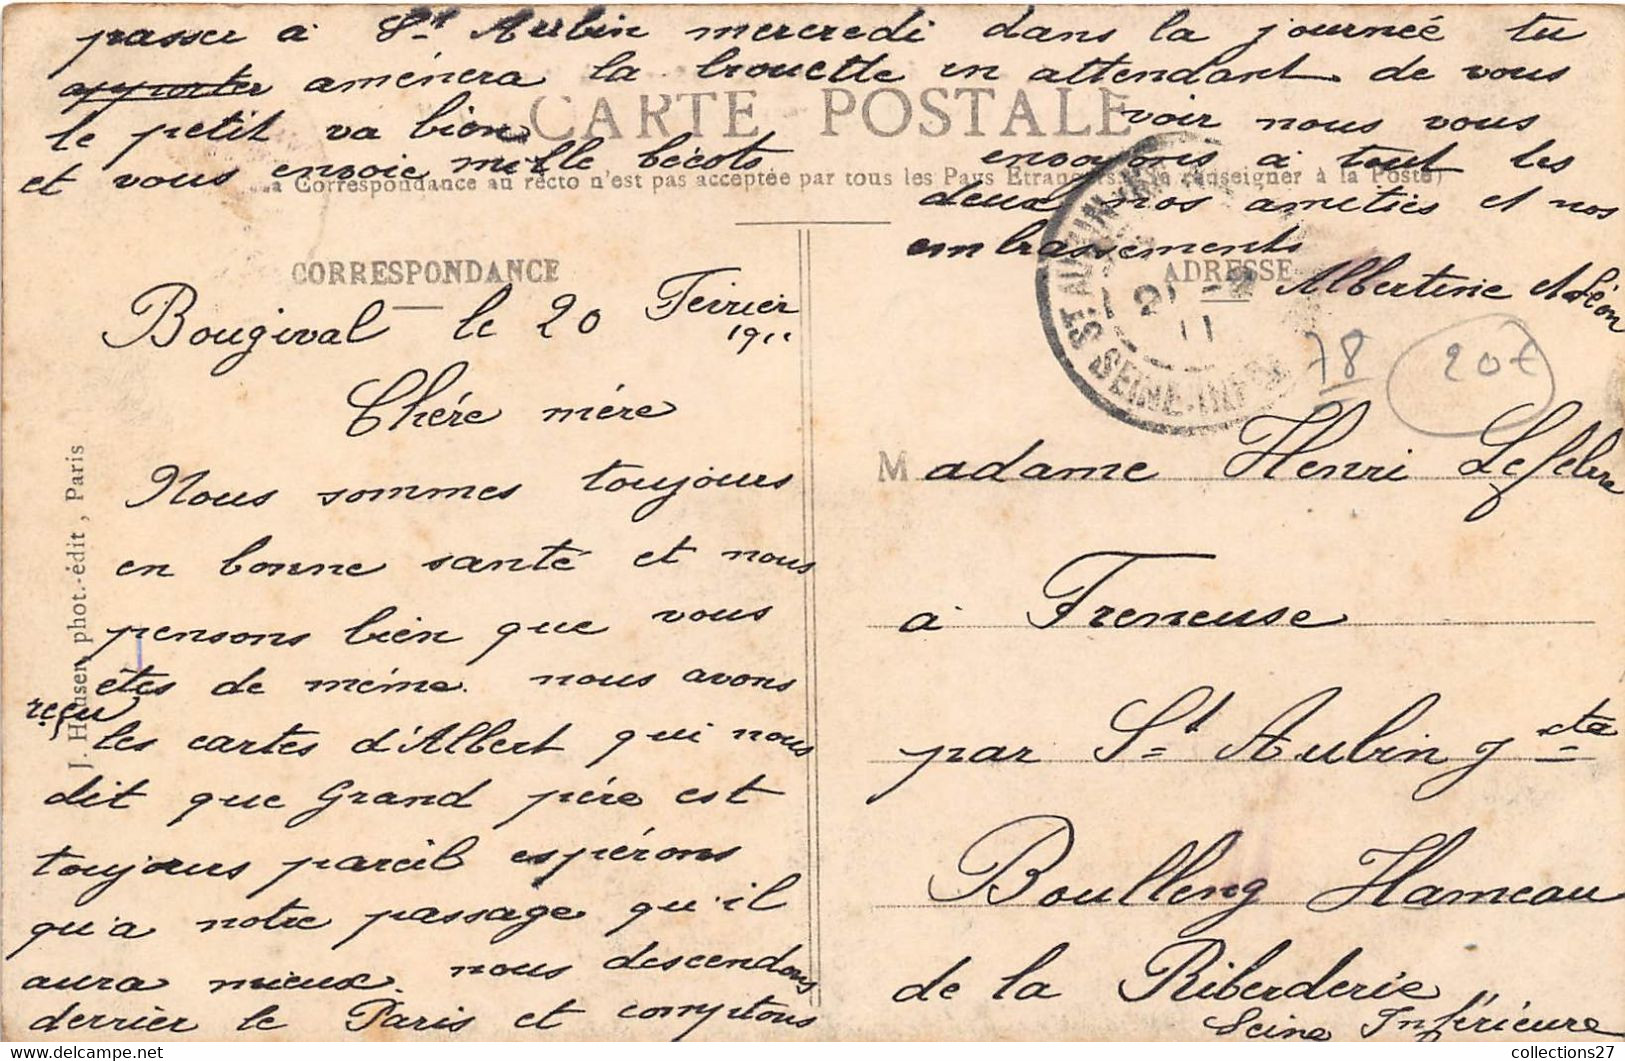 passer à St Aubin mercredi dans la journée tu
apporter amènera la brouette en attendant de vous
voir nous vous
le petit va bien
et vous envoie mille bécots
envoyons à tout les
deux nos amitiés et nos
embrassements
Albertine et Léon
CARTE POSTALE
La Correspondance au recto n'est pas acceptée par tous les Pays Etrangers (Se renseigner à la Poste)
CORRESPONDANCE
Bougival le 20 Feivrier
1911
Chére mére
Nous sommes toujours
en bonne santé et nous
pensons bien que vous
êtes de même. nous avons
reçu
les cartes d'Albert qui nous
dit que Grand père est
toujours pareil espérons
qu'a notre passage qu'il
aura mieux. nous descendons
derrier le Paris et comptons
J. Hansen, phot.-édit, Paris
ADRESSE
ST AUBIN
SEINE-INFRE
21 -2
11
78
20€
Madame Henri Lefebvre
à Freneuse
par St Aubin jcte
Boulleng Hameau
de la Riberderie
Seine Inférieure
collections27